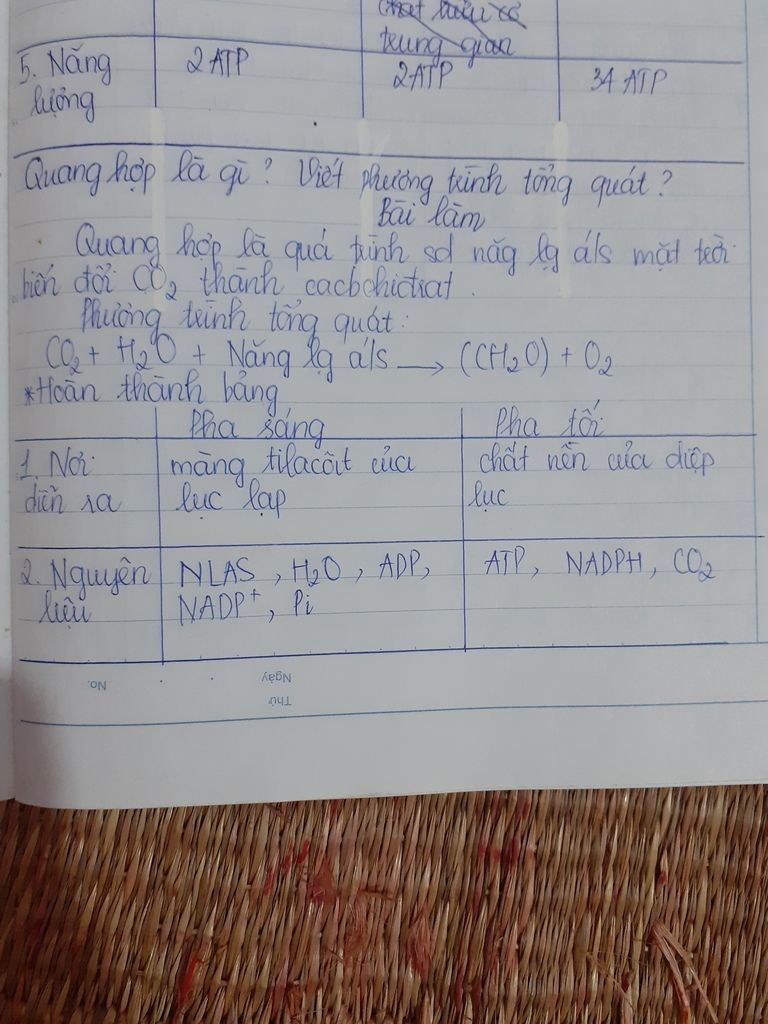 chất hữu cơ
trung gian
5. Năng lượng
2 ATP
2ATP
34 ATP
Quang hợp là gì? Viết phương trình tổng quát?
Bài làm
Quang hợp là quá trình sd năg lg á/s mặt trời
biến đổi CO₂ thành cacbohiđrat.
Phương trình tổng quát:
CO₂ + H₂O + Năng lg á/s → (CH₂O) + O₂
*Hoàn thành bảng
Pha sáng
Pha tối
1. Nơi
diễn ra
màng tilacôit của
lục lạp
chất nền của diệp
lục
2. Nguyên
liệu
NLAS, H₂O, ADP,
NADP⁺, Pi
ATP, NADPH, CO₂
No.
Ngày
Thứ